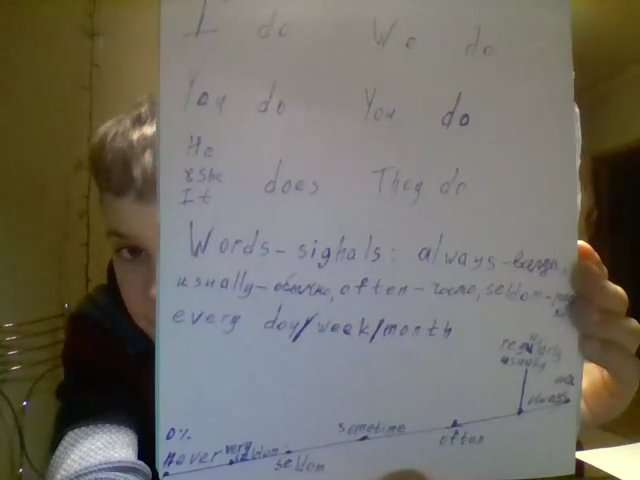 I do We do
You do You do
He
She
It does They do
Words-signals: always-
usually-обычно, often-часто, seldom-
every day/week/month
regularly
usually
always
0%
never very seldom seldom sometime often